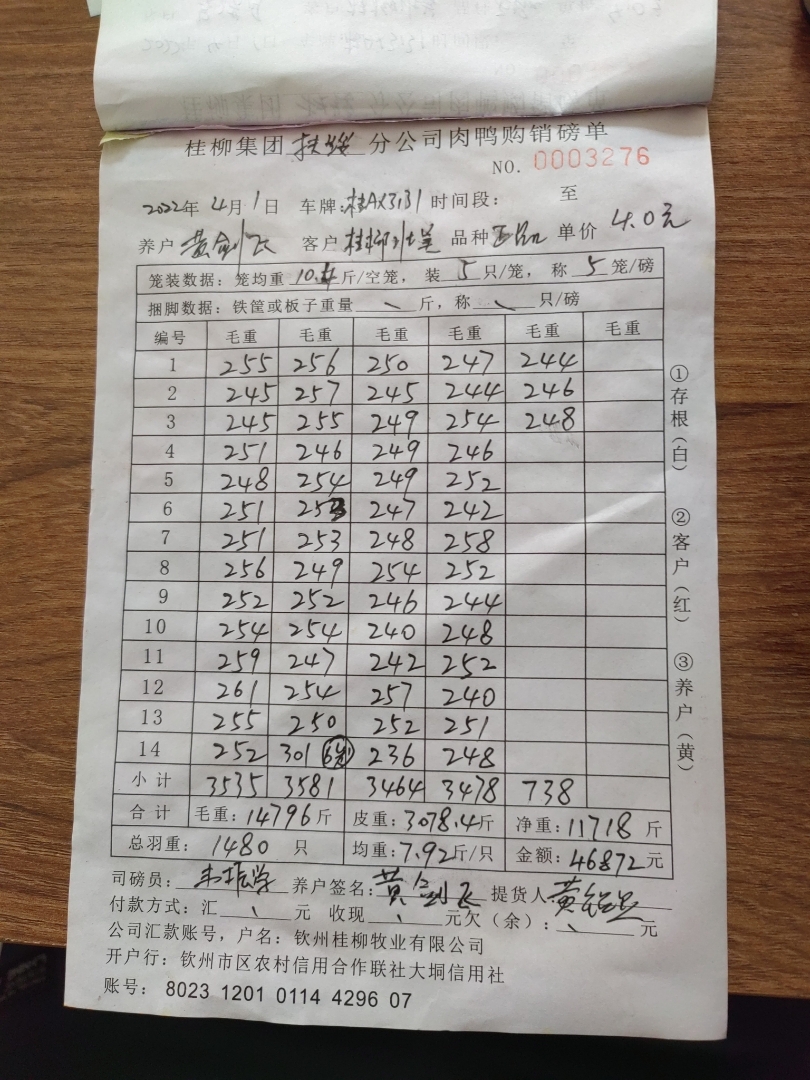 桂柳集团扶绥分公司肉鸭购销磅单
NO. 0003276
2022年 4月 1日 车牌:桂AX3131 时间段: 至
养户 黄剑飞 客户 桂柳 品种 正品 单价 4.0元
笼装数据: 笼均重 10.4 斤/空笼, 装 5 只/笼, 称 5 笼/磅
捆脚数据: 铁筐或板子重量 、 斤, 称 、 只/磅
编号 毛重 毛重 毛重 毛重 毛重 毛重
1 255 256 250 247 244
2 245 257 245 244 246
3 245 255 249 254 248
4 251 246 249 246
5 248 254 249 252
6 251 253 247 242
7 251 253 248 258
8 256 249 254 252
9 252 252 246 244
10 254 254 240 248
11 259 247 242 252
12 261 254 257 240
13 255 250 252 251
14 252 301 6笼 236 248
小计 3535 3581 3464 3478 738
合计 毛重:14796斤 皮重:3078.4斤 净重:11718斤
总羽重: 1480 只 均重:7.92斤/只 金额:46872元
司磅员: 养户签名:黄剑飞 提货人
付款方式: 汇 、 元 收现 、 元欠(余): 、 元
公司汇款账号, 户名: 钦州桂柳牧业有限公司
开户行: 钦州市区农村信用合作联社大垌信用社
账号: 8023 1201 0114 4296 07
①存根(白) ②客户(红) ③养户(黄)